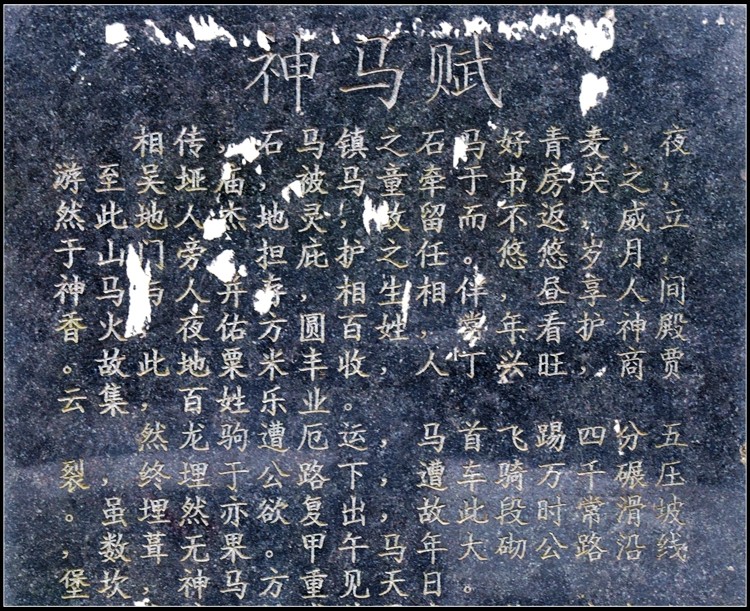 神马赋
相传，石马镇之石马好青麦，夜
游至吴垭庙，被马童牵于书房关之，
然此地人杰地灵，故留而不返，威立
于山门旁，担庇护之任。悠悠岁月，
神马与人并存，相生相伴，昼享人间
香火，夜佑方圆百姓，常年看护神殿
。故此地粟米丰收，人丁兴旺，商贾
云集，百姓乐业。
然龙驹遭厄运，马首飞踢四分五
裂，终埋于公路下，遭车骑万千碾压
。虽埋然亦欲复出，故此段时常滑坡
，数葺无果。甲午马年大砌公路沿线
堡坎，神马方重见天日。